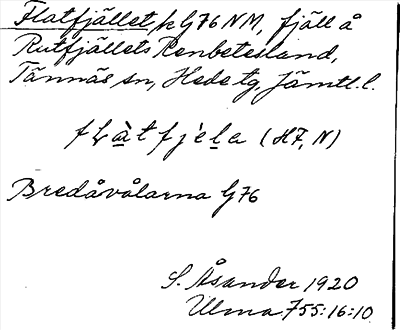 Flatfjället k G76 NM, fjäll å
Rutfjällets Renbetesland,
Tännäs sn, Hede tg, Jämtl. l.
fḷàtfjela (HF, N)
Bredåvålarna G76
S. Åsander 1920
Ulma 755:16:10